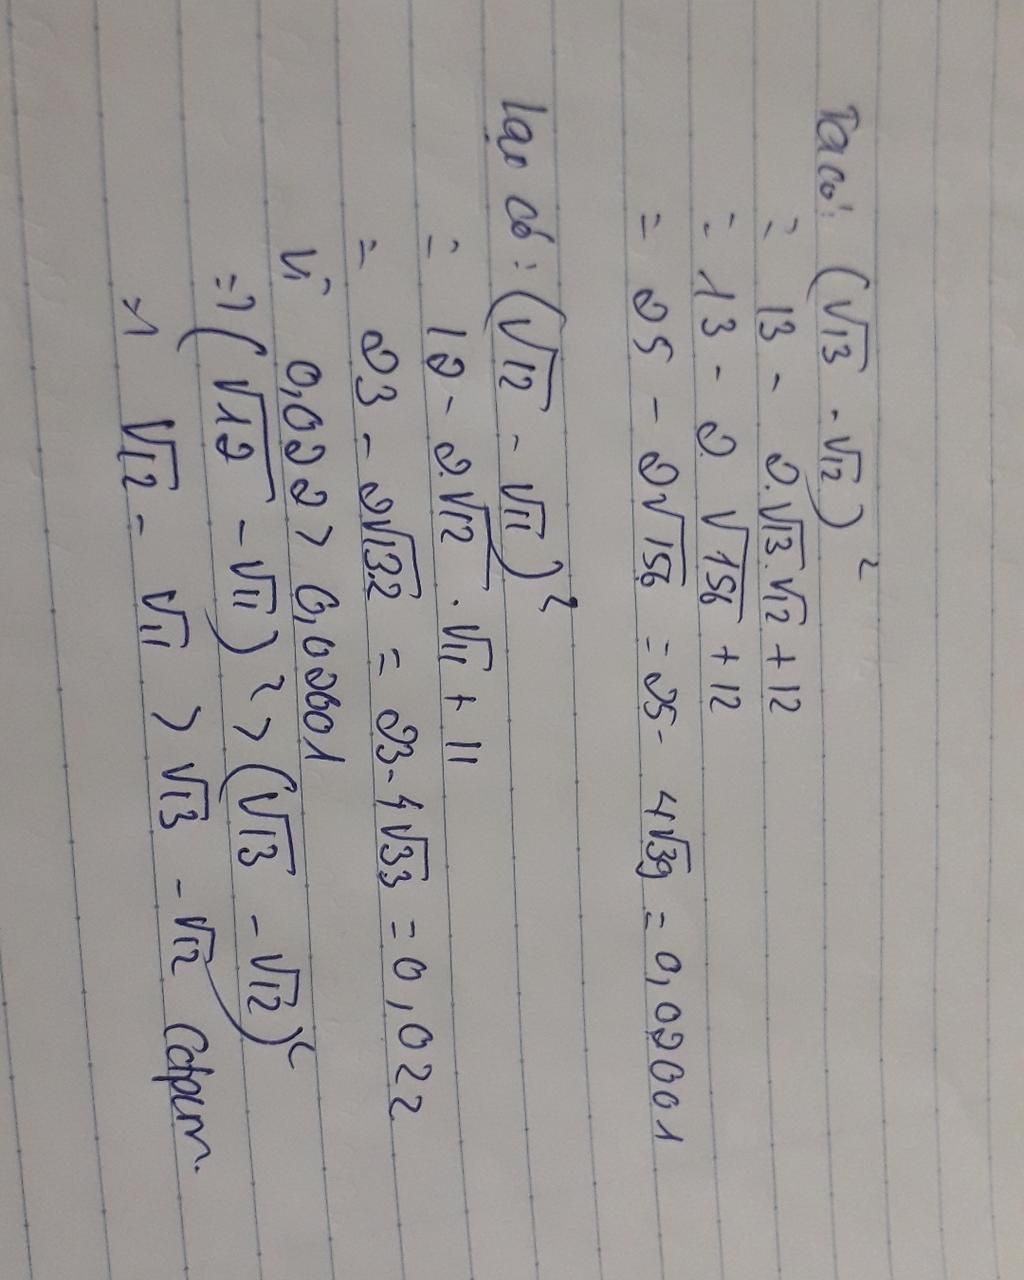 Ta có: (√13 - √12)²
= 13 - 2.√13.√12 + 12
= 13 - 2.√156 + 12
= 25 - 2√156 = 25 - 4√39 = 0,02001
lại có: (√12 - √11)²
= 12 - 2.√12.√11 + 11
= 23 - 2√132 = 23 - 4√33 = 0,022
Vì 0,022 > 0,02001
=> (√12 - √11)² > (√13 - √12)²
√12 - √11 > √13 - √12 (đpcm.